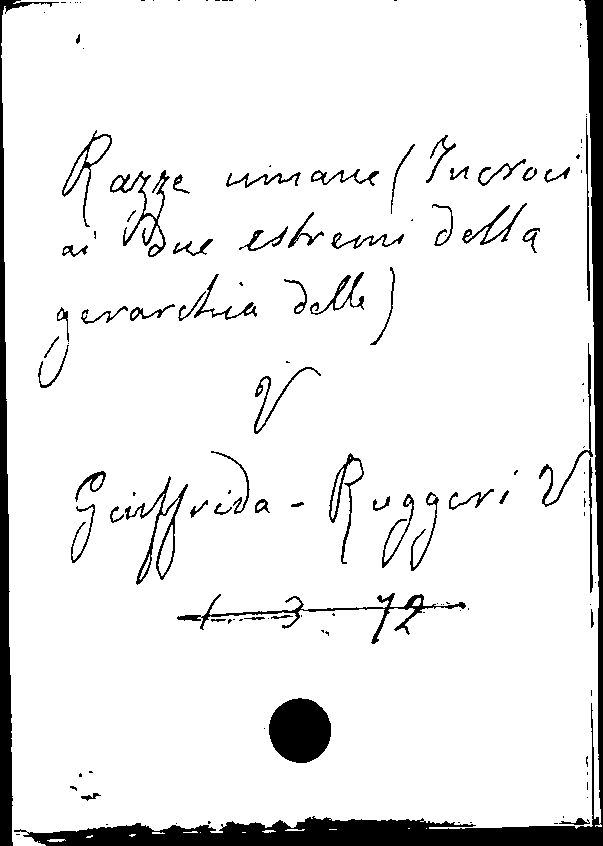 Razze umane (Incroci
ai due estremi della
gerarchia delle)
V
Giuffrida - Ruggeri V
1 3 72